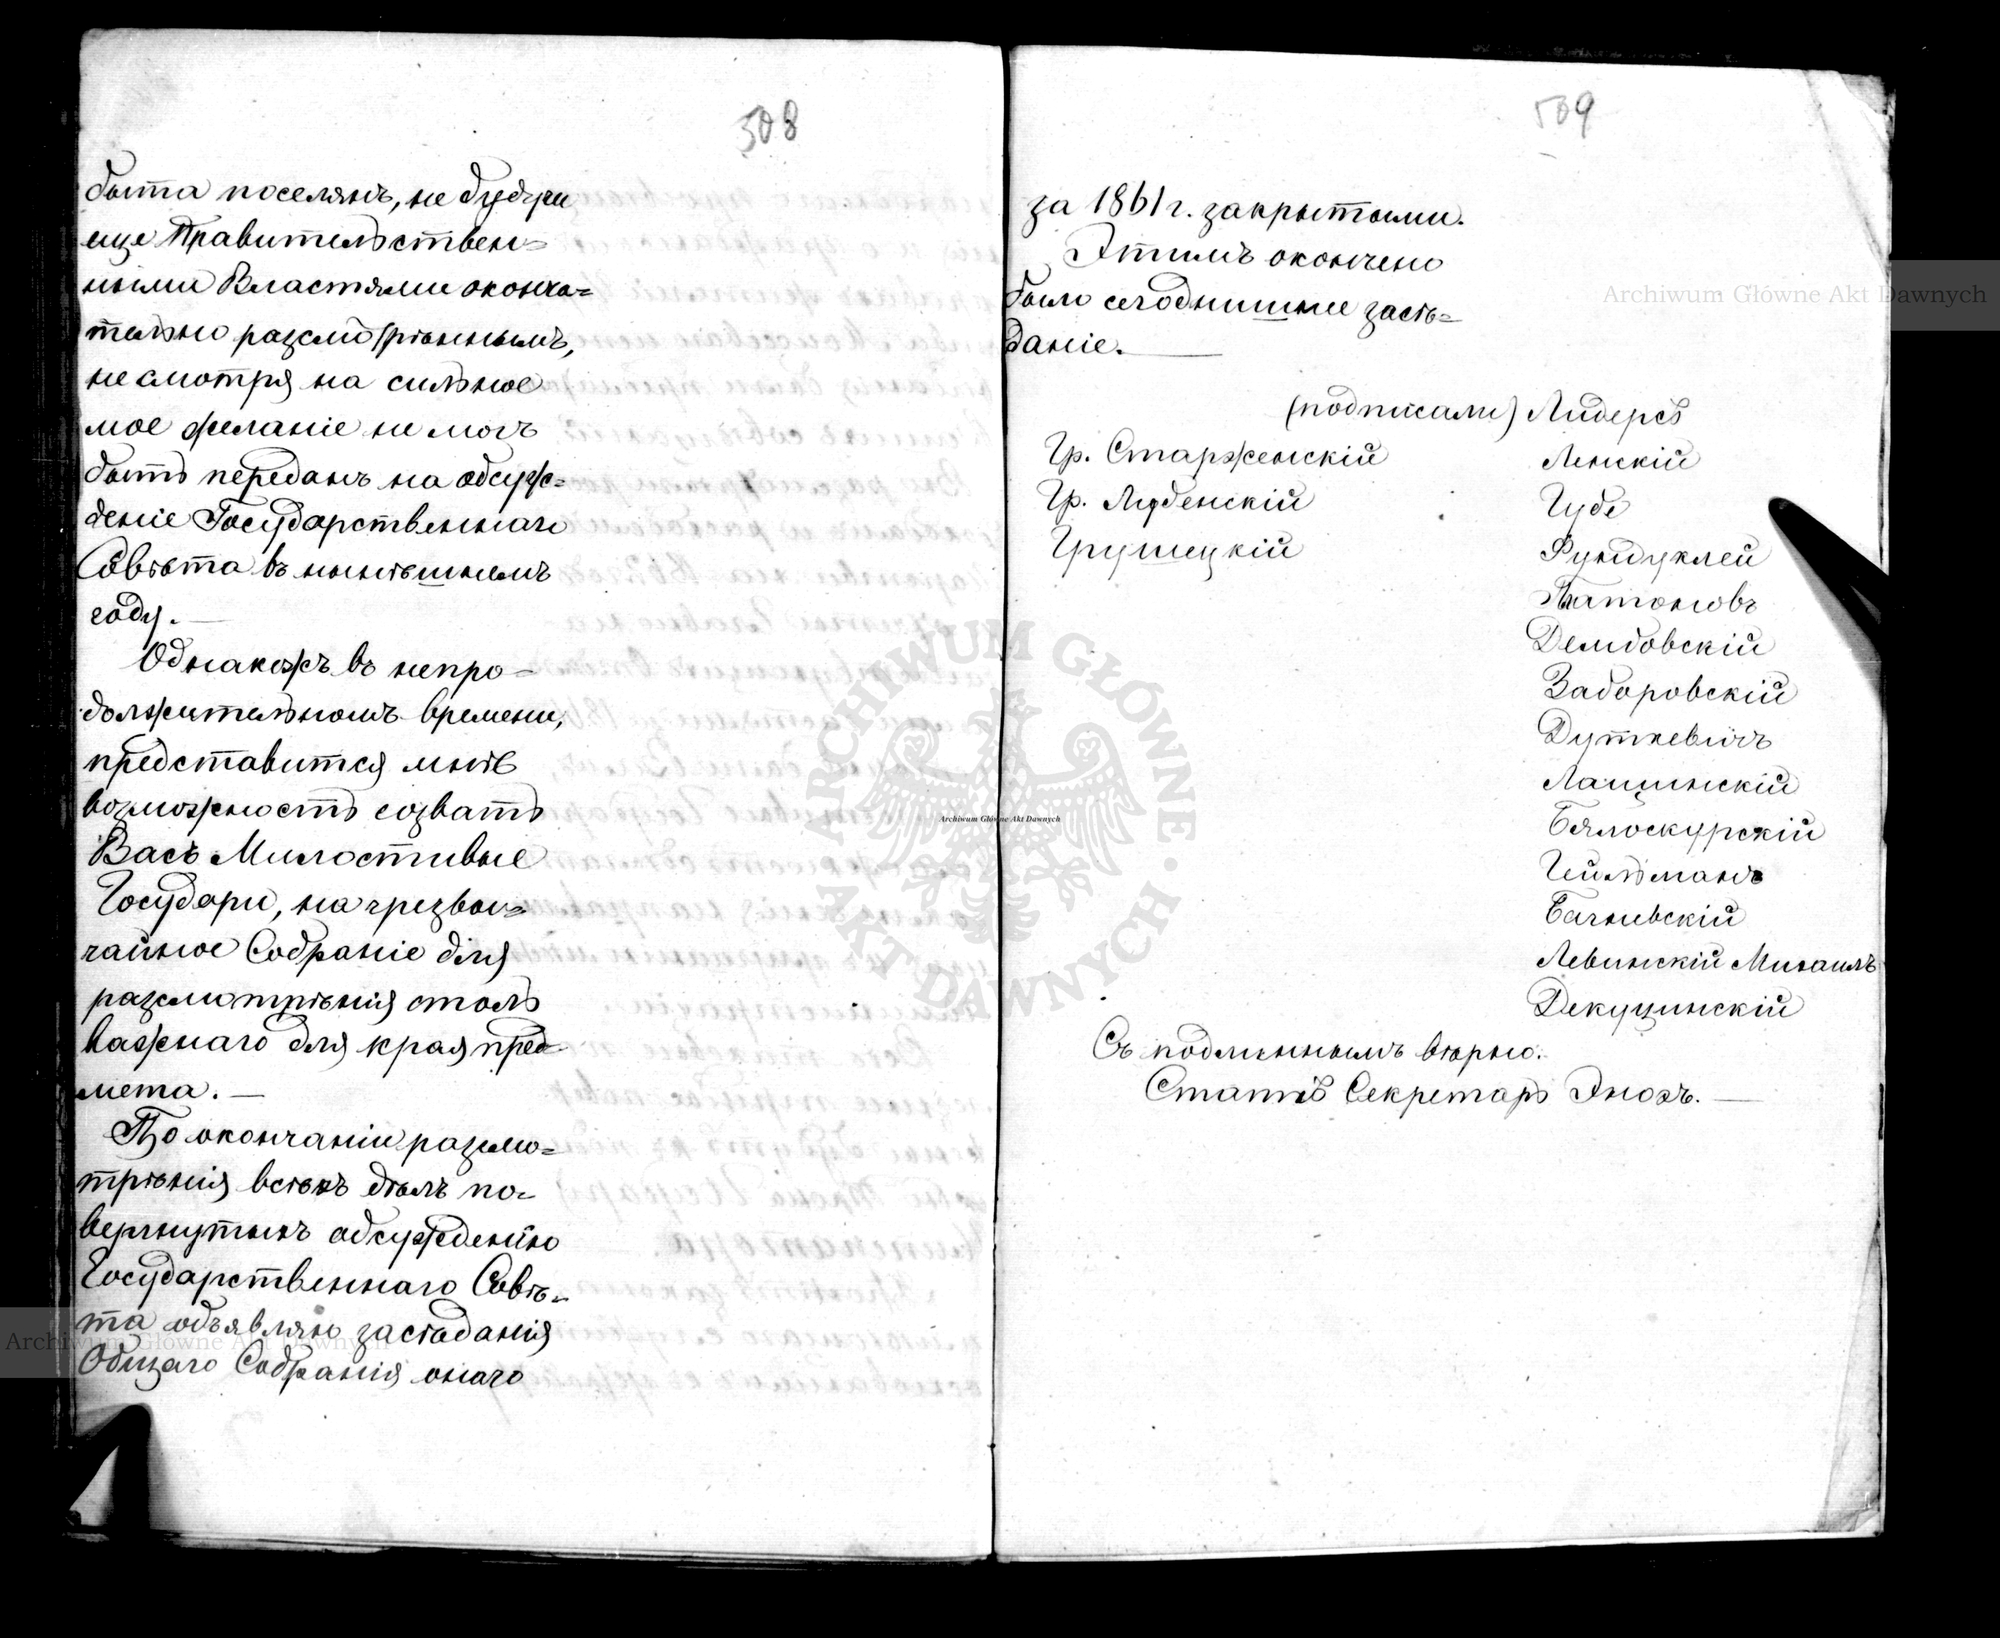 508
быта поселянъ, не будучи
еще Правительствен=
ными Властями оконча=
тельно разсмотрѣннымъ,
не смотря на сильное
мое желаніе не могъ
быть переданъ на обсуж=
деніе Государственнаго
Совѣта въ нынѣшнемъ
году. —
Однакожъ въ непро=
должительномъ времени,
представится мнѣ
возможность созвать
Васъ Милостивые
Государи, на чрезвы=
чайное Собраніе для
разсмотрѣнія столь
важнаго для края пред-
мета. —
По окончаніи разсмо=
трѣнія всѣхъ дѣлъ по-
вергнутыхъ обсужденію
Государственнаго Совѣ-
та объявляю засѣданія
Общаго Собранія онаго
509
за 1861 г. закрытыми.
Этимъ окончено
было сегоднишнее засѣ=
даніе. —
(подписали) Лидерсъ
Гр. Старженскій
Ленскій
Гр. Лубенскій
Губе
Грушецкій
Фундуклей
Платоновъ
Дембовскій
Заборовскій
Дуткевичъ
Лащинскій
Бялоскурскій
Гейльманъ
Бачневскій
Левинскій Михаилъ
Декуцинскій
Съ подлиннымъ вѣрно.
Статсъ Секретарь Энохъ. —
Archiwum Główne Akt Dawnych
Archiwum Główne Akt Dawnych
ARCHIWUM GŁÓWNE AKT DAWNYCH
Archiwum Główne Akt Dawnych